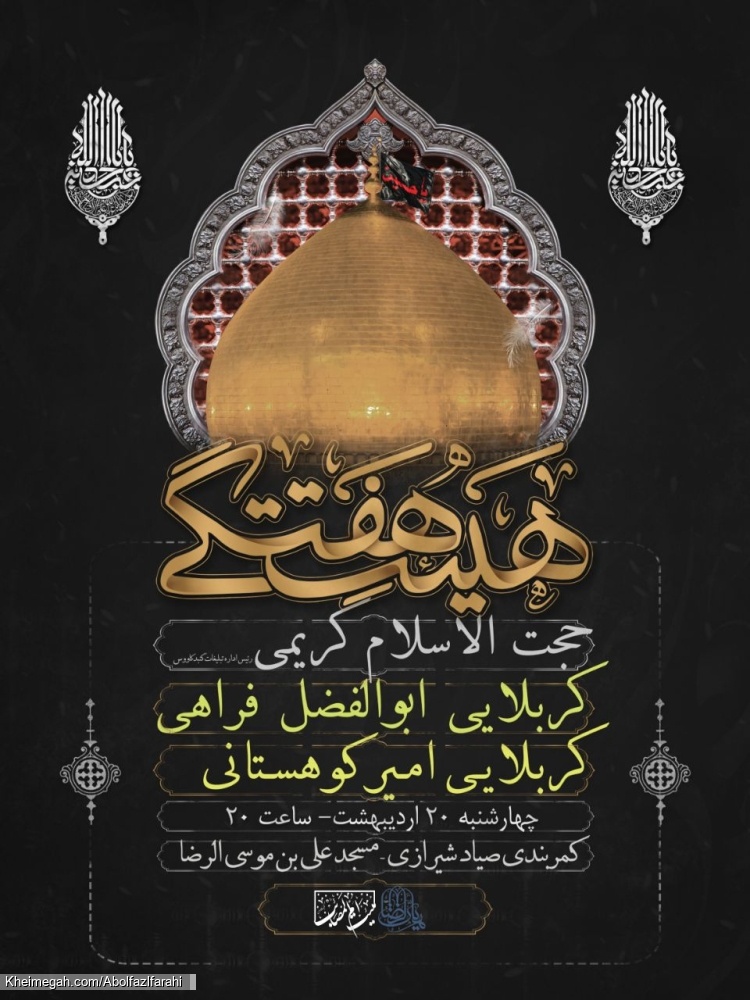 یا حسین
هیئت هفتگی
حجت الاسلام کریمی
رئیس اداره تبلیغات گنبدکاووس
کربلایی ابوالفضل فراهی
کربلایی امیر کوهستانی
چهارشنبه ۲۰ اردیبهشت - ساعت ۲۰
کمربندی صیاد شیرازی - مسجد علی بن موسی الرضا
Kheimegah.com/Abolfazlfarahi